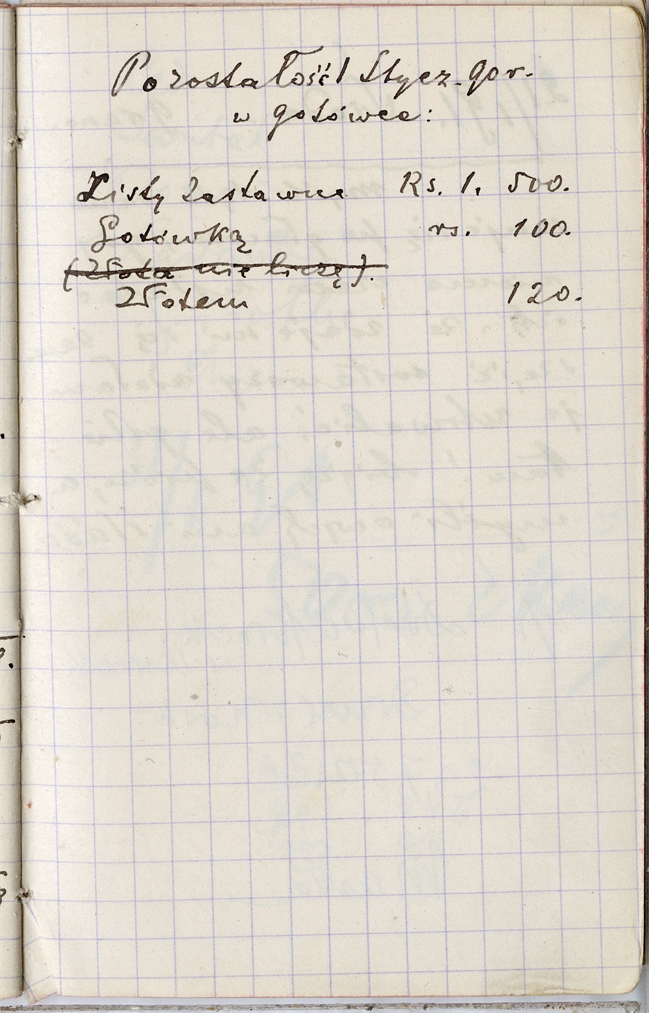 Pozostałość 1 Stycz. 90 r.
w gotówce:
Listy Zastawne Rs. 1. 500.
Gotówką rs. 100.
(Złota nie liczę).
Złotem 120.